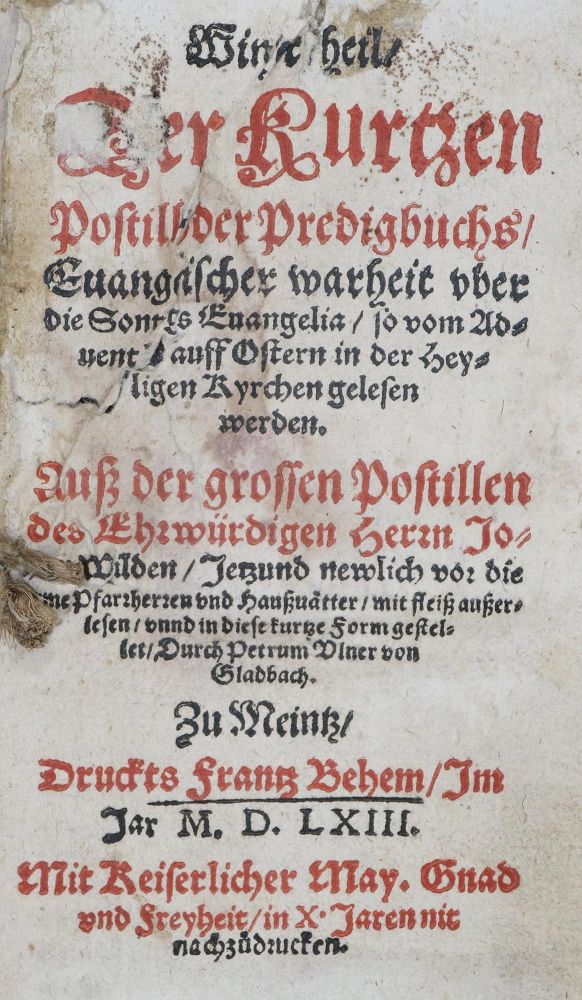 heil/
Der Kurtzen
Postill/ der Predigbuchs/
warheit vber
die Euangelia / so vom Ad-
uent auff Ostern in der Hey-
ligen Kyrchen gelesen
werden.
Auß der grossen Postillen
des Ehrwürdigen Herrn Jo-
Wilden / Jetzund newlich vor die
Pfarrherren vnd Haußuätter / mit fleiß außer-
lesen / vnnd in diese kurtze Form gestel-
let / Durch Petrum Vlner von
Gladbach.
Zu Meintz/
Druckts Frantz Behem / Im
Jar M. D. LXIII.
Mit Keiserlicher May. Gnad
vnd Freyheit / in X. Jaren nit
nachzůdrucken.